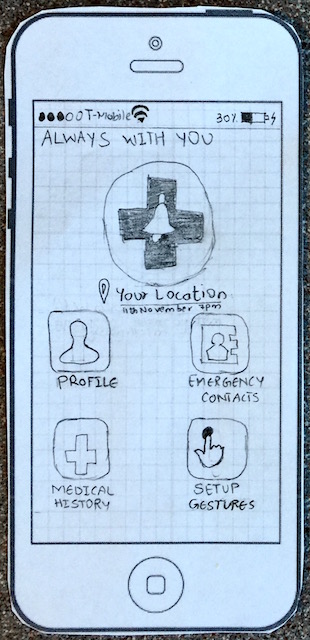 T-Mobile 30%
ALWAYS WITH YOU
Your Location
11th November 7pm
PROFILE
EMERGENCY
CONTACTS
MEDICAL
HISTORY
SETUP
GESTURES